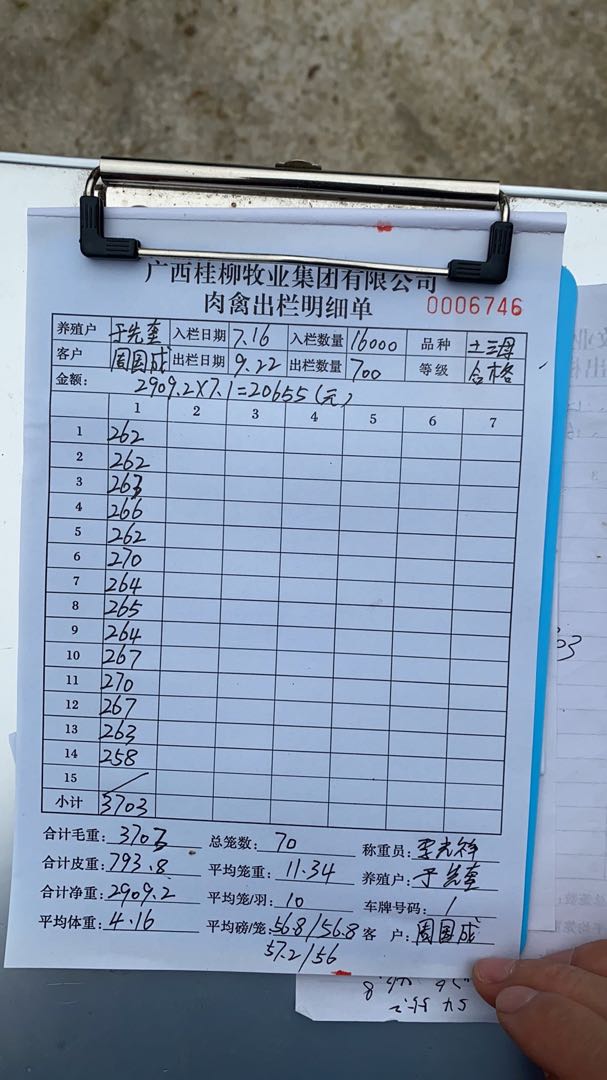 广西桂柳牧业集团有限公司
肉禽出栏明细单 0006746
养殖户 于先奎 入栏日期 7.16 入栏数量 16000 品种 土三母
客户 周国成 出栏日期 9.22 出栏数量 700 等级 合格
金额: 2909.2X7.1=20655(元)
1 2 3 4 5 6 7
1 262
2 262
3 263
4 266
5 262
6 270
7 264
8 265
9 264
10 267
11 270
12 267
13 263
14 258
15 /
小计 3703
合计毛重: 3703 总笼数: 70 称重员:
合计皮重: 793.8 平均笼重: 11.34 养殖户: 于先奎
合计净重: 2909.2 平均笼/羽: 10 车牌号码: 1
平均体重: 4.16 平均磅/笼: 56.8/56.8 客户: 周国成
57.2/56